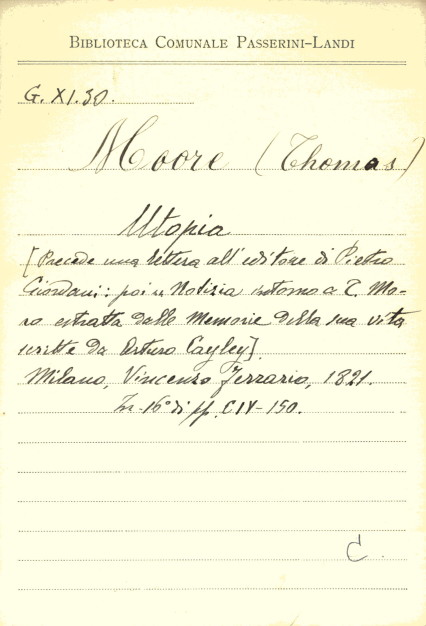 BIBLIOTECA COMUNALE PASSERINI-LANDI
G. XI. 30.
Moore (Thomas)
Utopia
[Precede una lettera all'editore di Pietro
Giordani: poi Notizia intorno a T. Mo-
ro estratta dalle Memorie della sua vita
scritte da Arturo Cayley].
Milano, Vincenzo Ferrario, 1821.
In-16° di pp. CIV-150.
C.